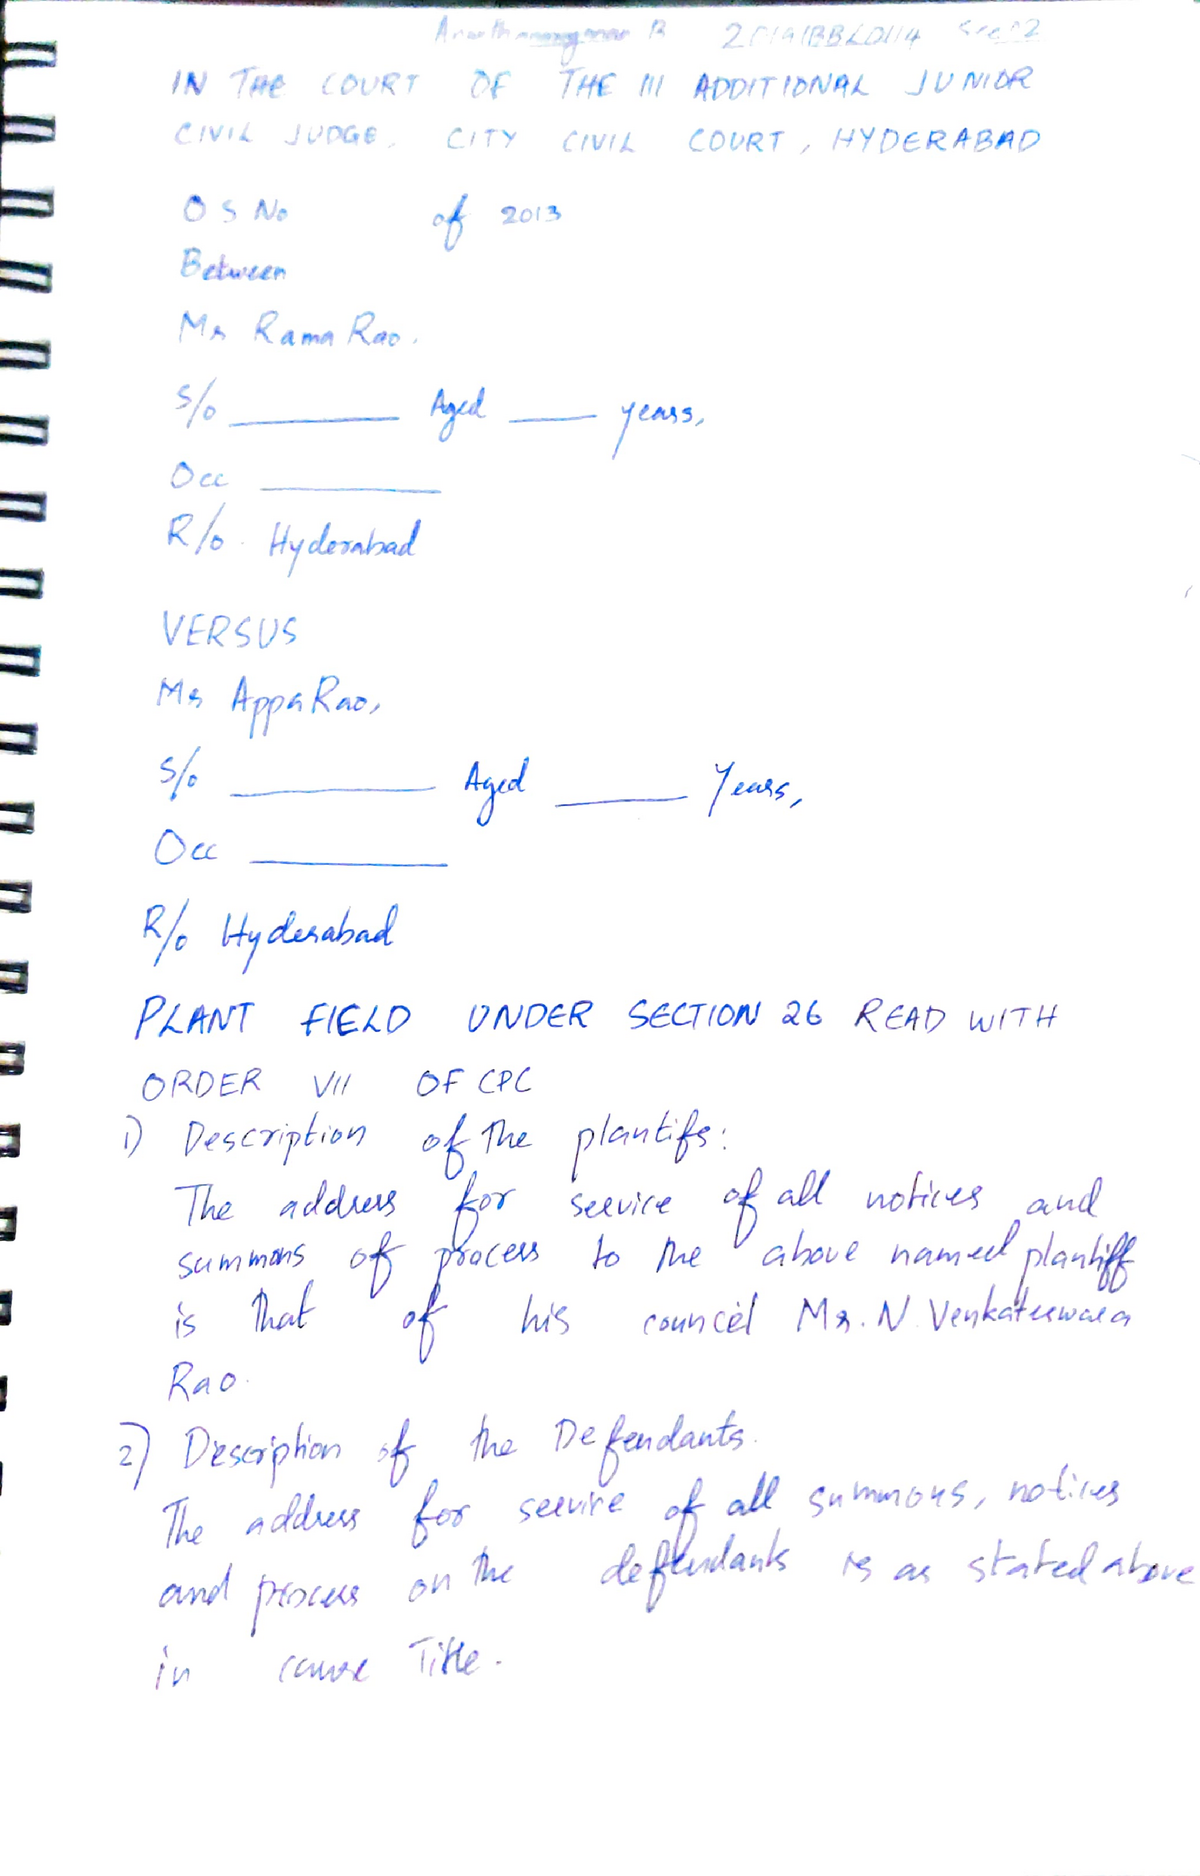 B 2019BBLD114 Sec 2
IN THE COURT OF THE III ADDITIONAL JUNIOR
CIVIL JUDGE, CITY CIVIL COURT, HYDERABAD
O S No of 2013
Between
Mr Rama Rao.
S/o ________ Aged ____ years,
Occ ________
R/o. Hyderabad
VERSUS
Mr Appa Rao,
S/o ________ Aged ______ Years,
Occ ________
R/o Hyderabad
PLANT FIELD UNDER SECTION 26 READ WITH
ORDER VII OF CPC
1) Description of the plantifs:
The address for service of all notices and
summons of process to the above named plantiff
is that of his councel Mr. N. Venkateswara
Rao.
2) Description of the Defendants.
The address for service of all summons, notices
and process on the defendants is as stated above
in cause Title.